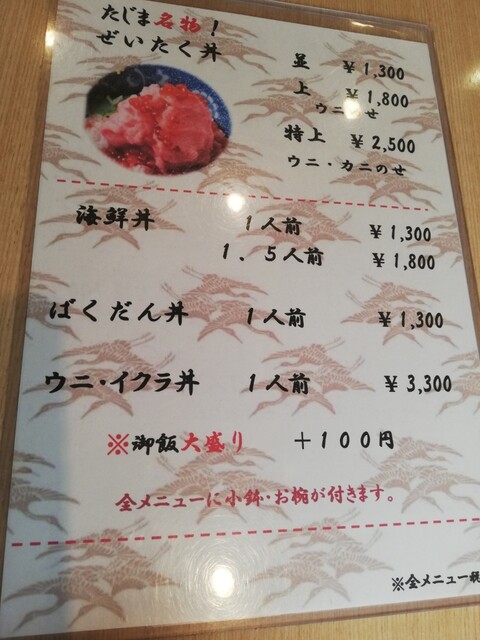 たじま名物!
ぜいたく丼
並 ¥1,300
上 ¥1,800
ウニのせ
特上 ¥2,500
ウニ・カニのせ
海鮮丼 1人前 ¥1,300
1.5人前 ¥1,800
ばくだん丼 1人前 ¥1,300
ウニ・イクラ丼 1人前 ¥3,300
※御飯大盛り +100円
全メニューに小鉢・お椀が付きます。
※全メニュー税